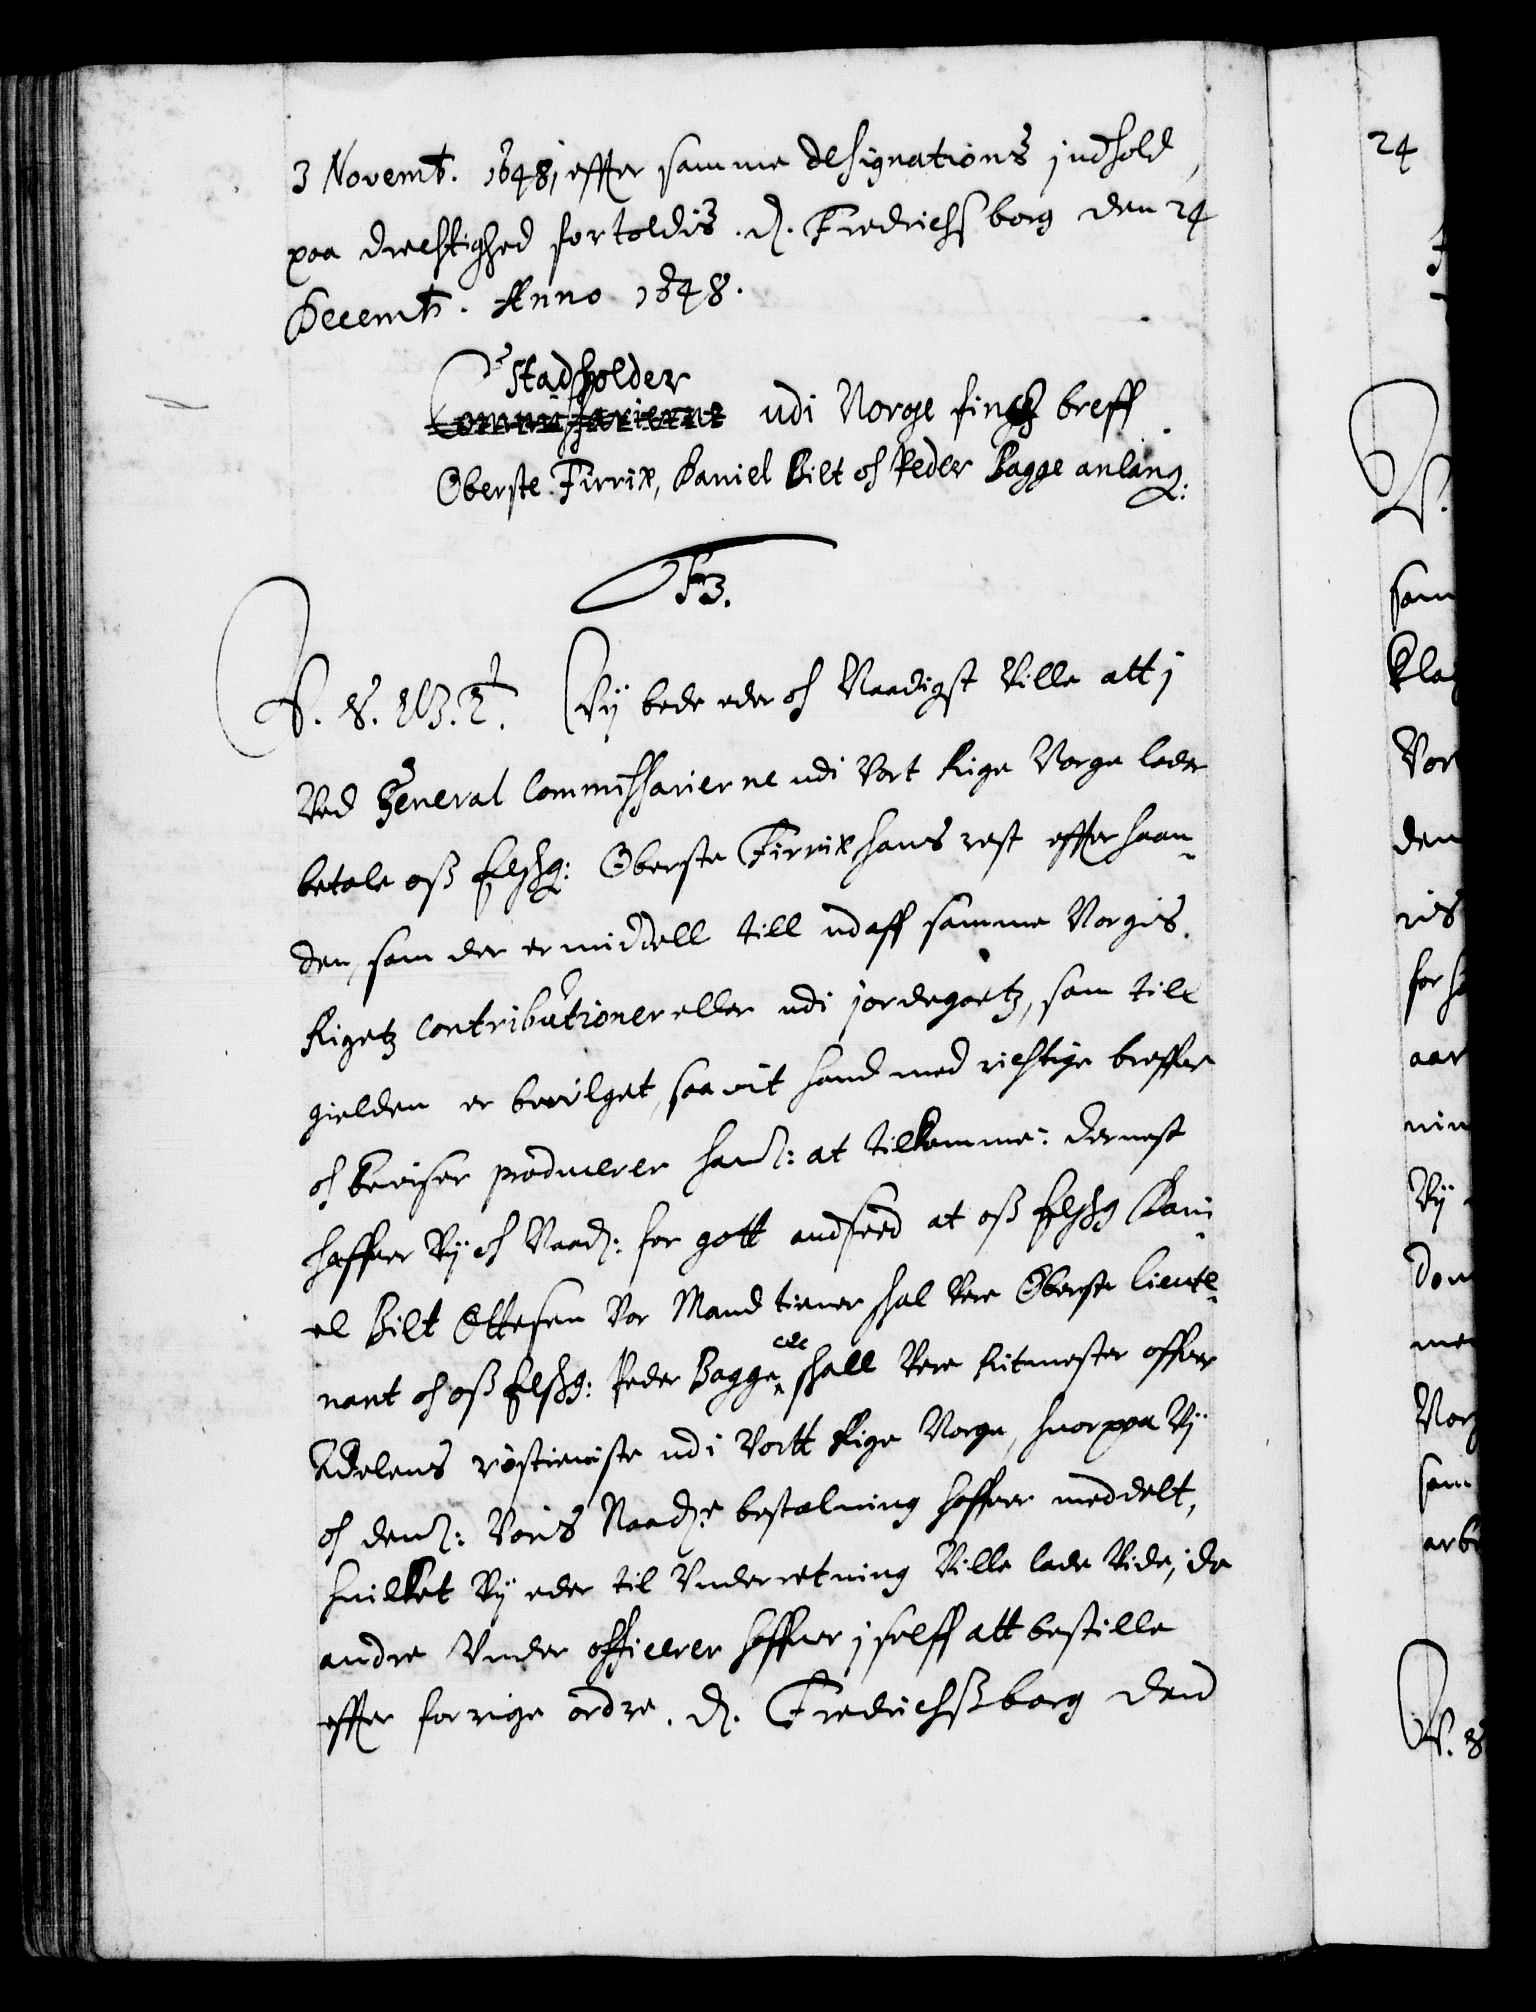 3 Novemb. 1648, effter samme designations jndhold,
paa drechtighed fortoldis. d. Fredrichsborg den 24
Decemb. Anno 1648.
Stadholder
Commissarierne udi Norge fingh breff
Oberste Firrix, Daniel Bilt och Peder Bagge anlang:
F3.
V. S. W. T. Vij bede eder och Naadigst Ville att j
Ved General Commissarierne udi Vort Rige Norge lader
betale oß Elschg: Oberste Firrix hans rest effter haan¬
den, som der er middell till udaff samme Norgis
Rigetz Contributioner eller udi jordegoetz, som till
gielden er bevilget, saa vit hand med richtige breffue
och beviser producerer hand: at tilkomme: dernest
haffuer Vij och Naad: for gott andseed at oß Elschg Dani¬
el Bilt Ottesen Vor Mand tiener schal Vere Oberste lieute¬
nant och oß Elschg: Peder Bagge etc schall Vere Ritmester offuer
Adelens röstieniste udi Vortt Rige Norge, huorpaa Vij
och dend: Voris Naad:e bestalning haffuer meddelt,
huilket Vij eder til Vnderretning Ville lade Vide, de
andre Vnder officerer haffuer j selff att bestille
effter forrige ordre. d. Fredrichßborg dend
24
som
klag
Vor
den
ris
for h
aar
nin
Vij
dom
me
Norg
som
arb
V. S